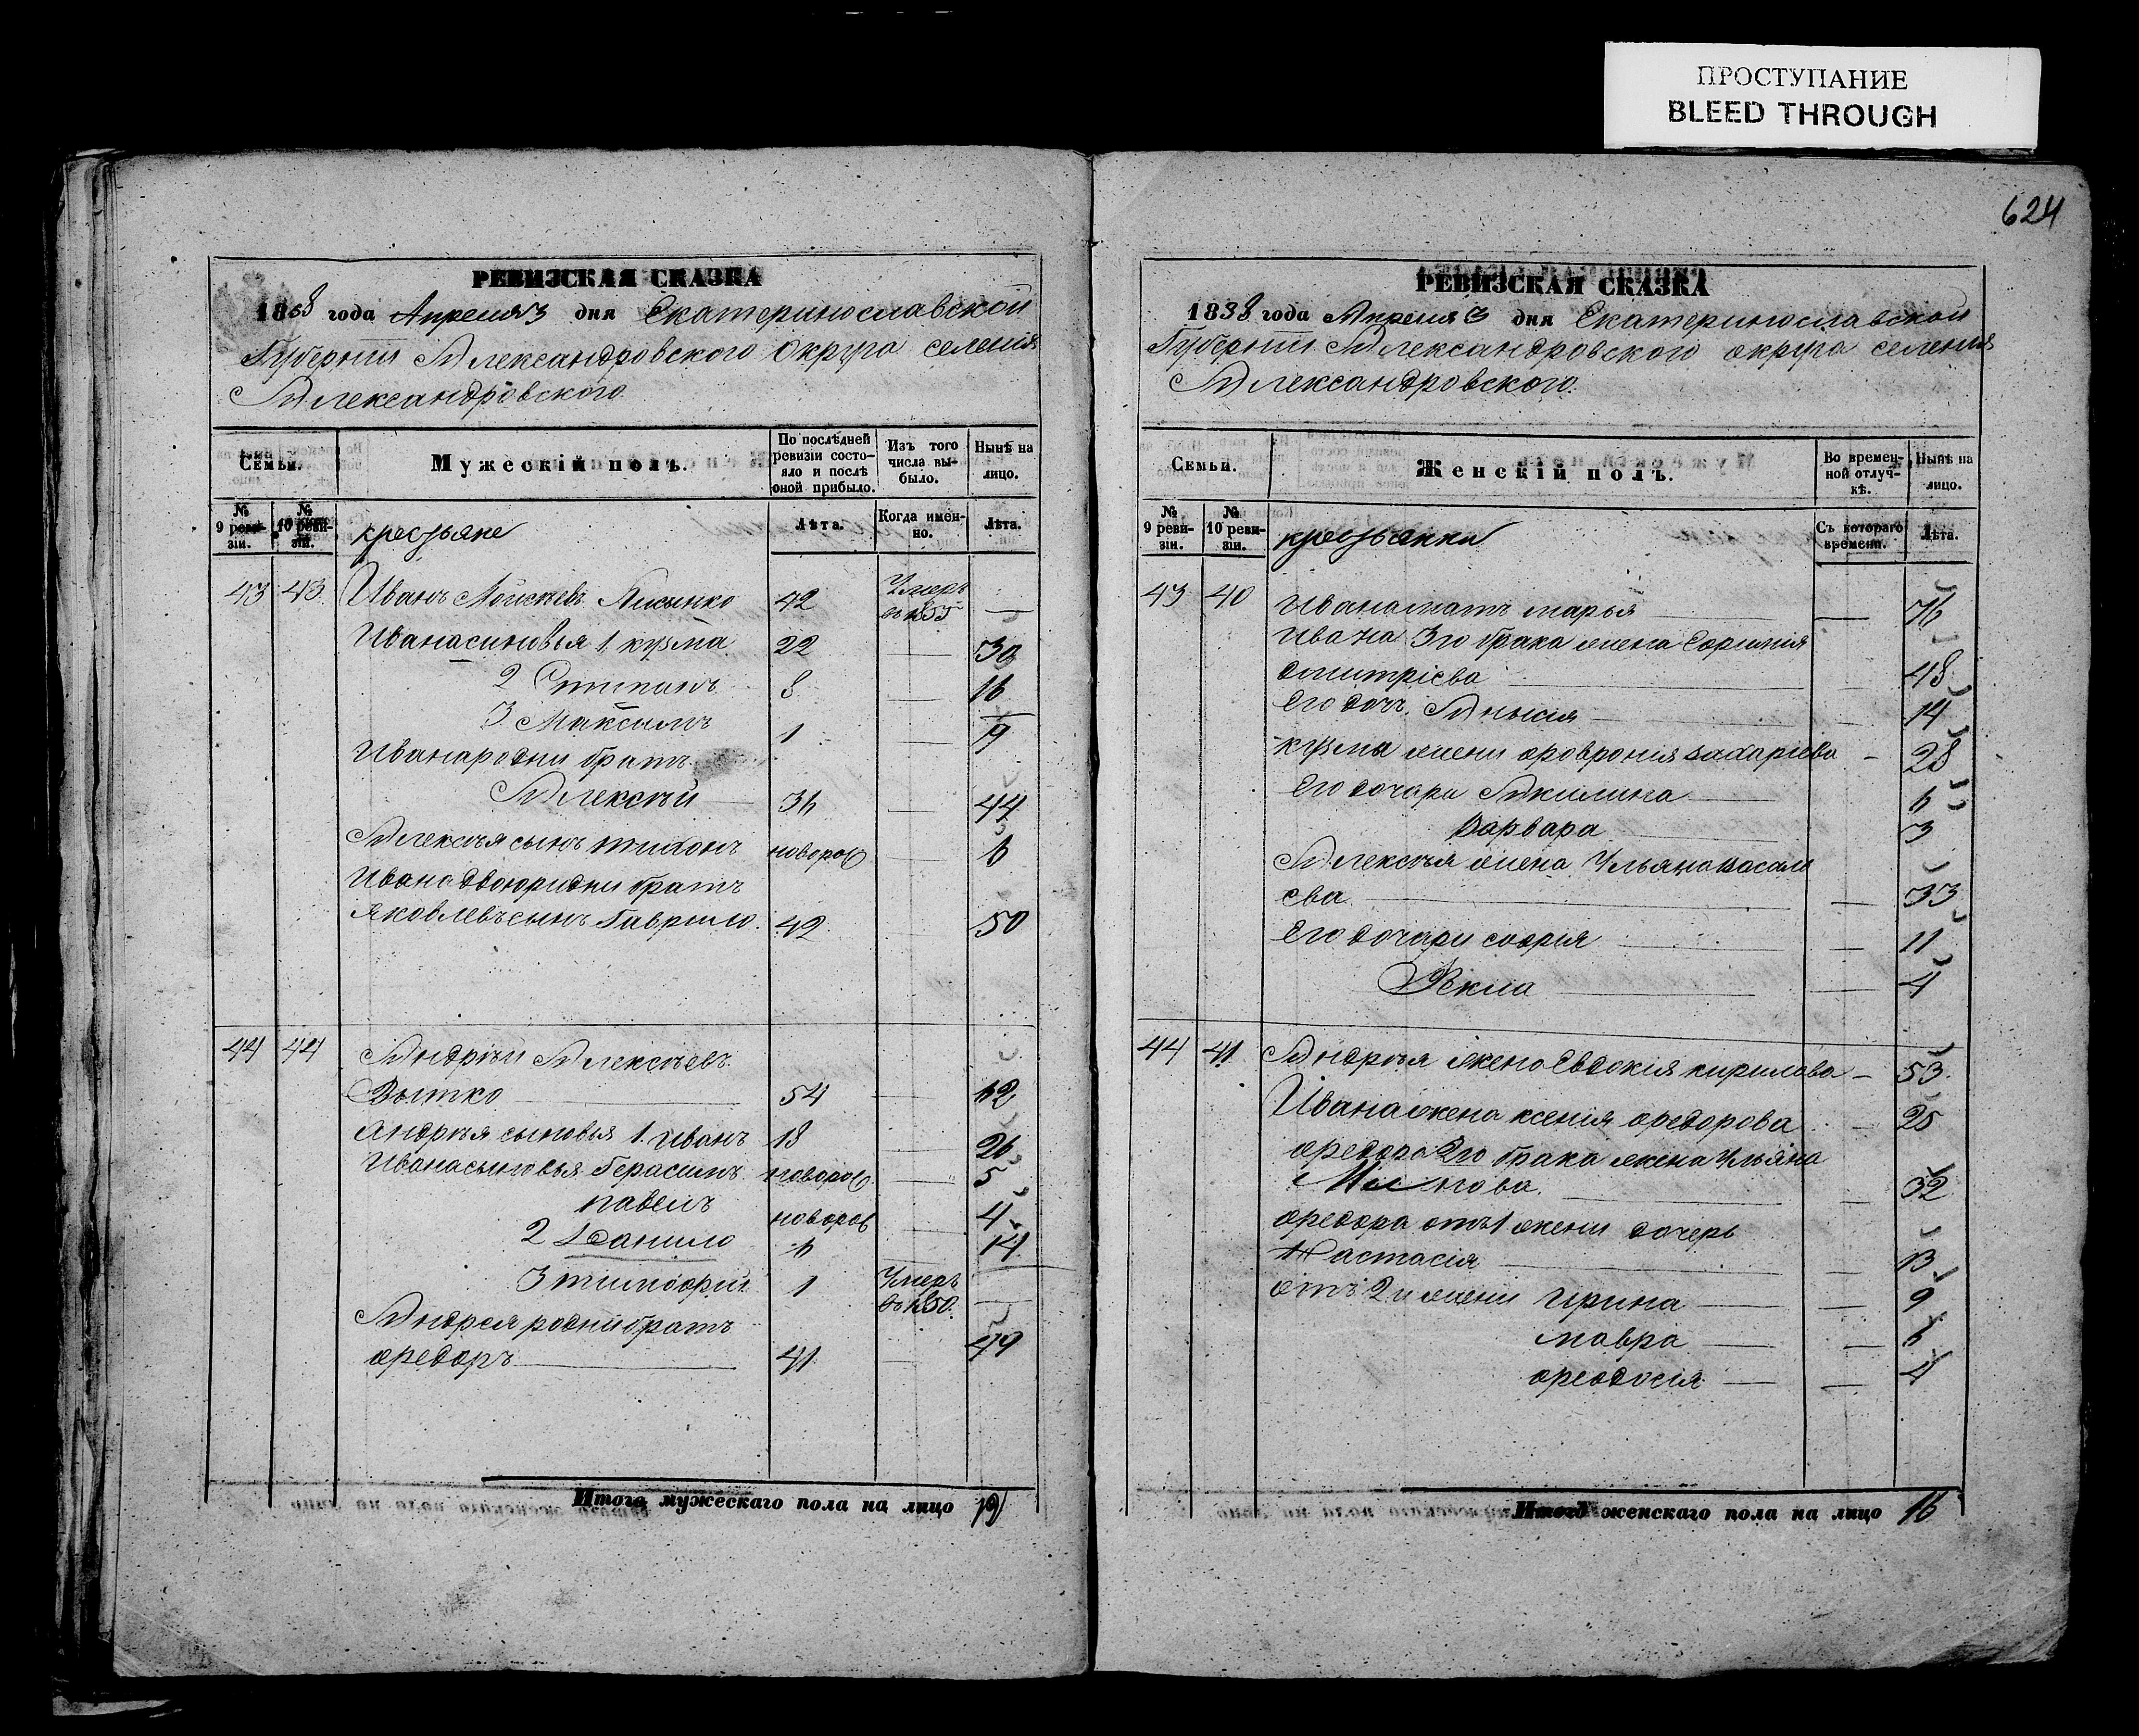 ПРОСТУПАНИЕ
BLEED THROUGH
624
РЕВИЗСКАЯ СКАЗКА
1858 года Апреля 3 дня Екатеринославской
Губернии Александровского Округа селения
Александровского
Семьи.
Мужескій полъ.
По послѣдней ревизіи состояло и послѣ оной прибыло.
Изъ того числа выбыло.
Нынѣ на лицо.
№ 9 ревизіи.
№ 10 ревизіи.
крестьяне
Лѣта.
Когда именно.
Лѣта.
43 43 Иванъ Мойсѣевъ 42 Умеръ въ 1855 —
Ивана синовья 1. кузма 22 — 30
2 Степанъ 8 — 16
3 Максимъ 1 — 9
Ивана родни братъ
Алексѣй 36 — 44
Алексѣя сынъ тихонъ новорож — 6
Ивана двоюридни братъ
Яковлевъ сынъ Гаврило 42 50
44 44 Андрѣй Алексѣевъ
54 — 62
Андрѣя сыновья 1. Иванъ 18 — 26
Ивана сыновья Герасимъ новорож — 5
павелъ новорож — 4
2 Данило 6 — 14
3 тимофий 1 Умеръ въ 1850. —
Андрея родни братъ
федоръ 41 — 49
Итого мужескаго пола на лицо 12
РЕВИЗСКАЯ СКАЗКА
1858 года Апреля 3 дня Екатеринославской
Губернии Александровского округа селения
Александровского.
Семьи.
Женскій полъ.
Во временной отлучкѣ.
Нынѣ на лицо.
№ 9 ревизіи.
№ 10 ревизіи.
крестьянки
Съ котораго времени.
Лѣта.
43 40 Ивана мать марья — 76
Ивана 3го брака жена
дмитріева — 48
Его доч. — 14
кузмы жени февронія захаріева — 28
Его дочери Акилина 6
Варвара 3
Алексѣя жена Ульяна
ева — 33
Его дочери софия — 11
Фекла — 4
44 41 Андрѣя жена Евдокія кирилова — 53
Ивана жена ксенія федорова — 25
федора 2го брака жена Ульяна
— 32
федора отъ 1 жени дочерь
Настасія — 13
отъ 2й жени Ирина — 9
мавра — 6
феодосія — 4
Итого женскаго пола на лицо 16